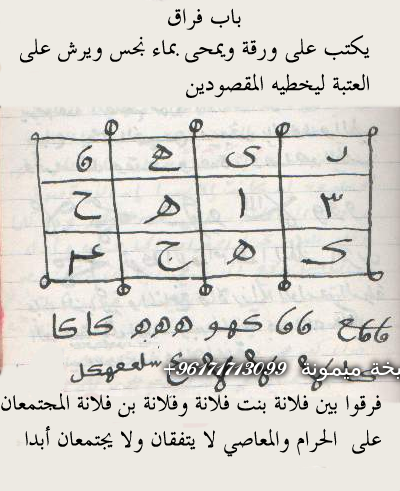 باب فراق
يكتب على ورقة ويمحى بماء نحس ويرش على
العتبة ليخطيه المقصودين
د ى ھ ٩
٣ ١ ھ ح
ك ھ ج عم
ععع ٩٩ كهو ههه كا كا
شيخة ميمونة +96171713099
فرقوا بين فلانة بنت فلانة وفلانة بن فلانة المجتمعان
على الحرام والمعاصي لا يتفقان ولا يجتمعان أبدا